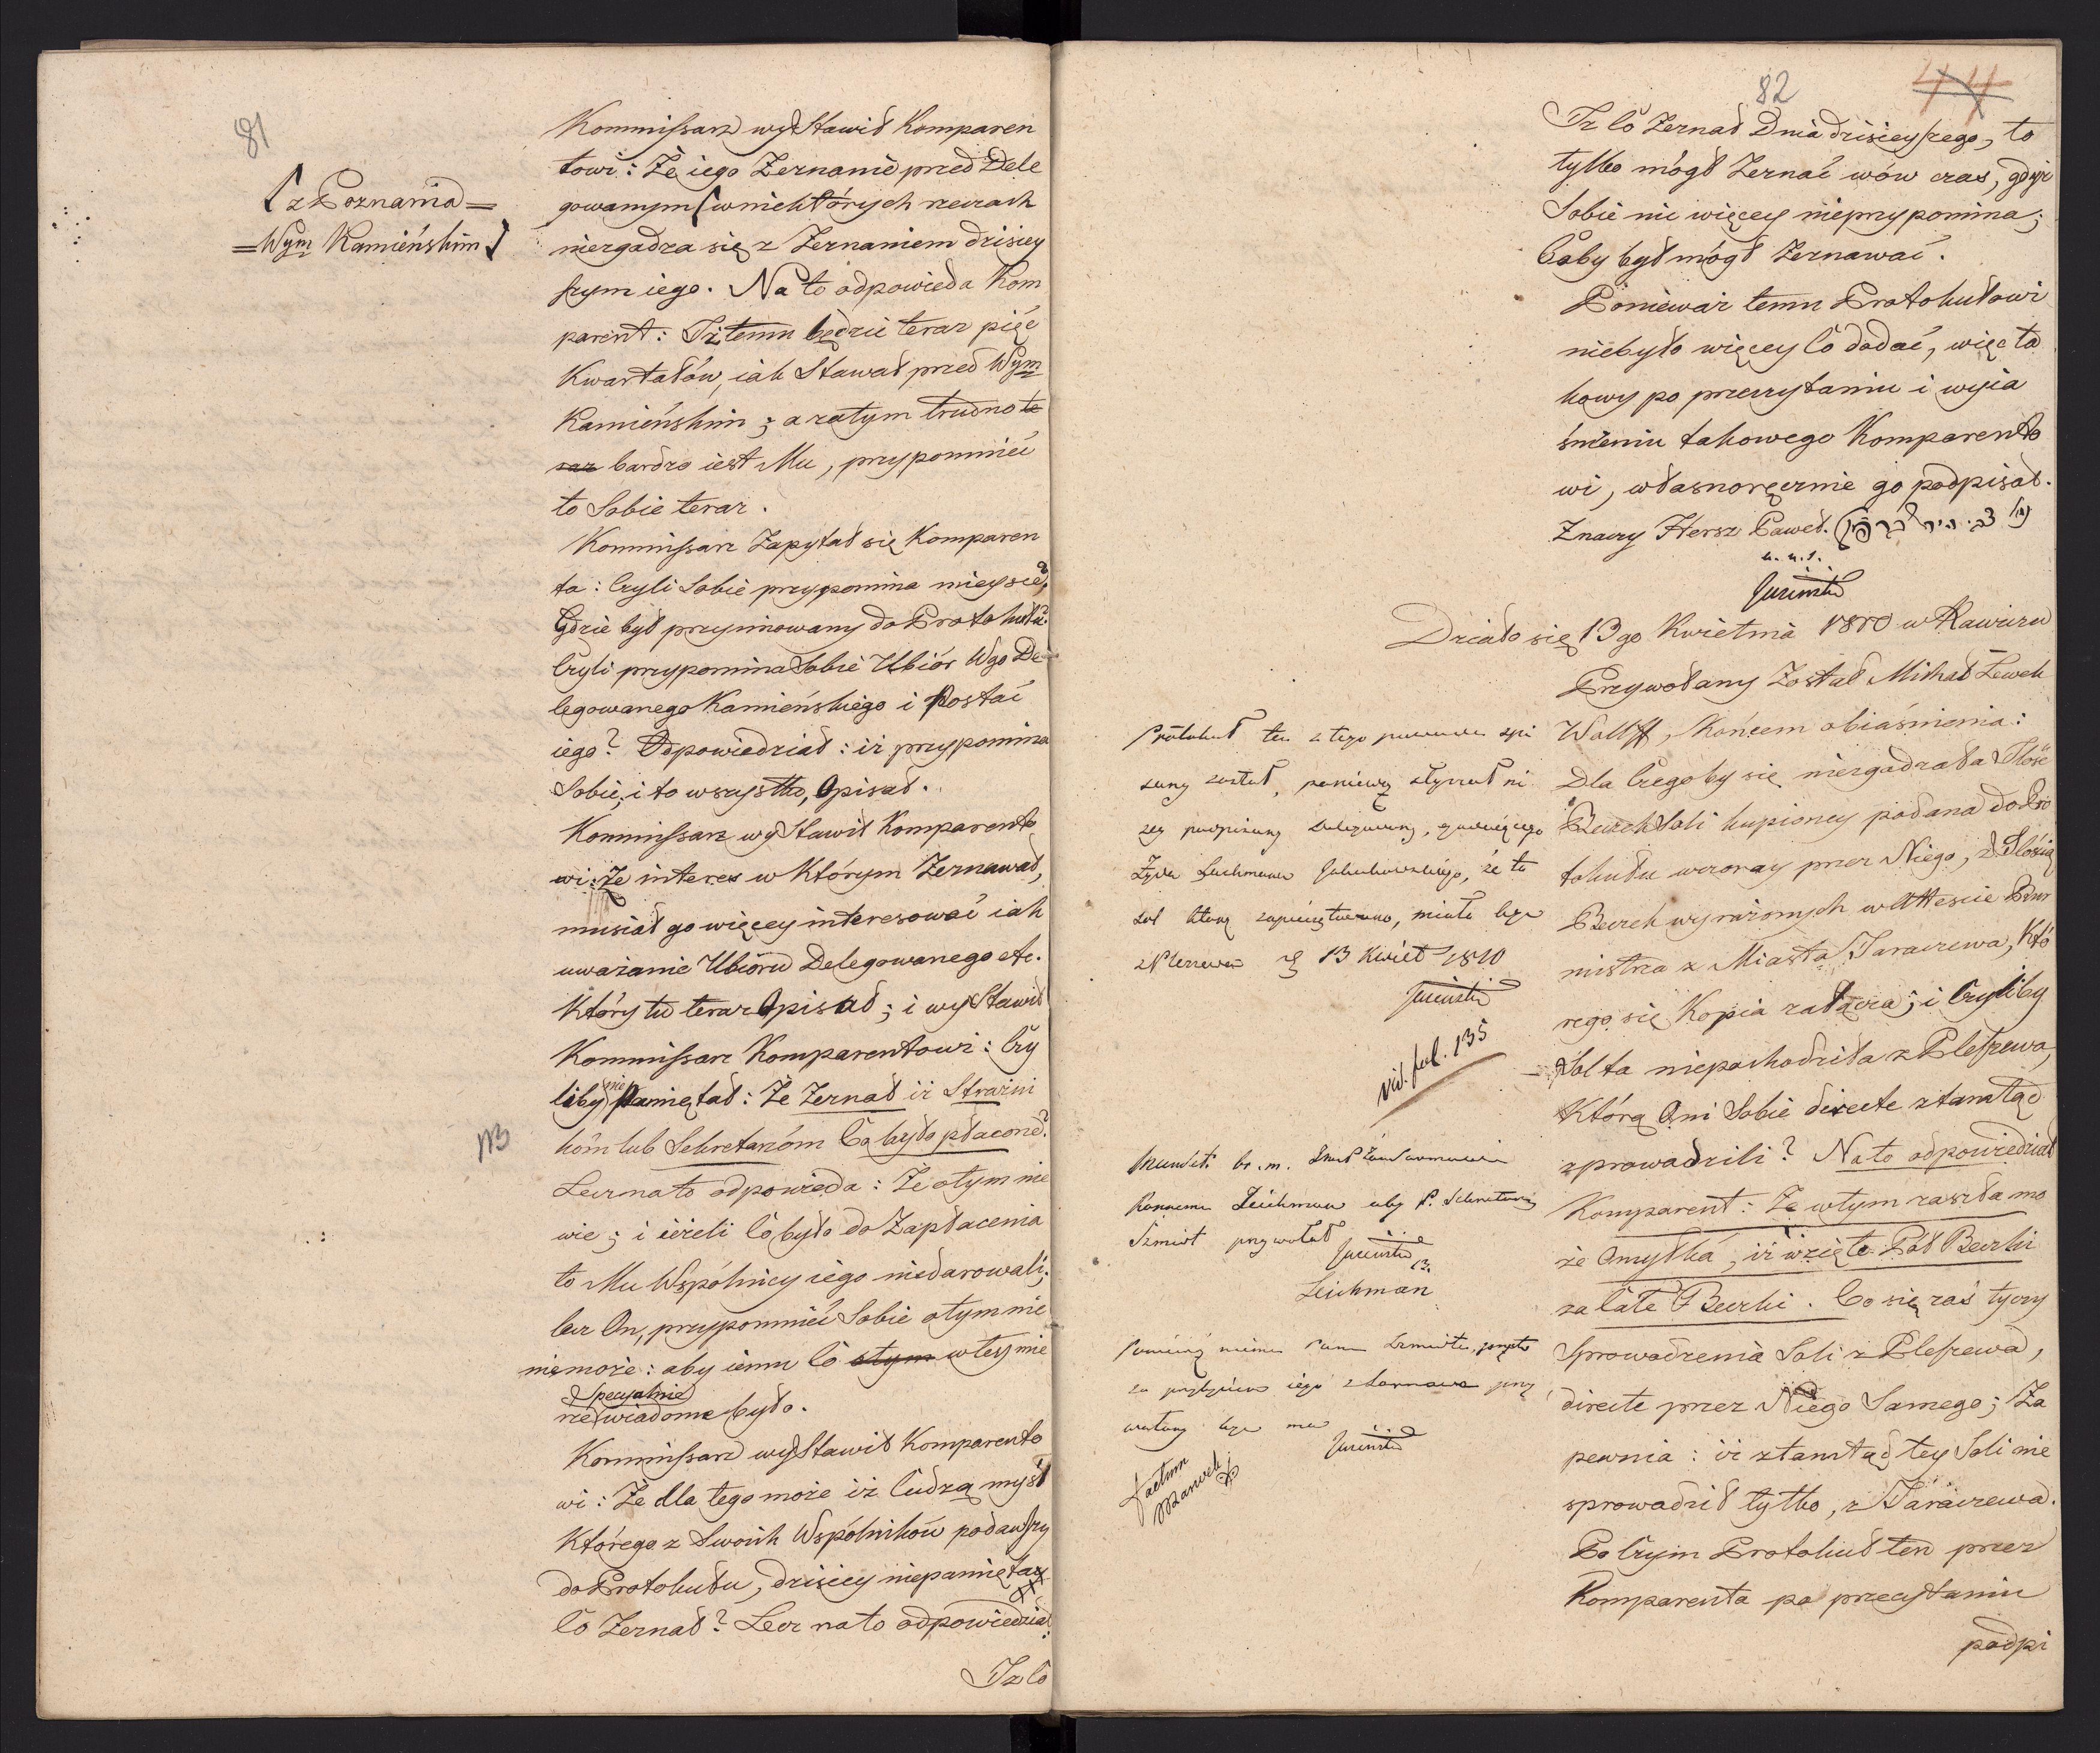 81
[z Poznania =
= Wym Kamieńskim]
Kommissarz wystawił Komparen
towi: Że iego Zeznanie przed Dele
gowanym [w niektórych rzeczach
niezgadza się z Zeznaniem dzisiey
szym iego. Na to odpowieda Kom
parent: Iż temu będzie teraz pięć
Kwartałów, iak Stawał przed Wym
Kamieńskim; a zatym trudno te
raz bardzo iest Mu, przypomnieć
to Sobie teraz.
Kommissarz Zapytał się Komparen
ta: Czyli Sobie przypomina mieysce,
Gdzie był przyimowany do Protokułu?
Czyli przypomina Sobie Ubiór Wgo De
legowanego Kamieńskiego i Postać
iego? Odpowiedział: iż przypomina
Sobie, i to wszystko, Opisał.
Kommissarz wystawił Komparento
wi: Że interes w Którym Zeznawał,
musiał go więcey interesować iak
uważanie Ubioru Delegowanego etc.
Który tu teraz Opisał; i wystawił
Kommissarz Komparentowi: Czy
liby nie Pamiętał: Że Zeznał iż Strażni
NB
kóm lub Sekretarzóm Co było płacone?
Lecz na to odpowieda: Że o tym nie
wie; i ieżeli co było do Zapłacenia
to Mu Wspólnicy iego niedarowali;
lecz On, przypomnieć Sobie o tym nie
niemoże: aby iemu co o tym w tey mie
Specyalnie
rze wiadome było.
Kommissarz wystawił Komparento
wi: Że dla tego może iż Cudzą myśl
Którego z Swoich Wspólników podawszy
do Protokułu, dzisiey niepamięta
co Zeznał? Lecz na to odpowiedział:
Iż co
82
44
Iż co Zeznał Dnia dzisieyszego, to
tylko mógł Zeznać wów czas, gdyż
Sobie nic więcey nieprzypomina;
Coby był mógł Zeznawać.
Ponieważ temu Protokułowi
niebyło więcey co dodać, więc ta
kowy po przeczytaniu i wyia
śnieniu takowego Komparento
wi, własnoręcznie go podpisał.
Znaczy Hersz Paweł.
Działo się 13go Kwietnia 1810 w Rawiczu
Przywołany Został Michał Lewek
Wollff, Końcem obiaśnienia:
Dla Czegoby się niezgadzała Ilość
Beczek Soli kupioney podana do Pro
tokułu wczoray przez Niego, z Ilością
Beczek wyrażonych w Attescie Bur
mistrza z Miasta Jaraczewa, Któ
rego się Kopia załącza; i Czyliby
Sol ta niepochodziła z Pleszewa,
Którą Oni Sobie directe ztamtąd
zprowadzili? Na to odpowiedział
Komparent: Że w tym zaszła mo
że Omyłka, iż wzięto Pół Beczki
za całe Beczki. Co się zaś tyczy
Sprowadzenia Soli z Pleszewa,
directe przez Niego Samego; Za
pewnia: iż ztamtąd tey Soli nie
sprowadził tylko, z Jaraczewa.
Po Czym Protokuł ten przez
Komparenta po przeczytaniu
podpi
Protokuł ten z tego powodu spi
sany został, ponieważ słyszał ni
żey podpisany Delegowany,
Żyda
sol
z Pleszewa 13 Kwiet 1810
vid. fol. 135
Sekretarz
Szmidt przywołał
13.
Leichman